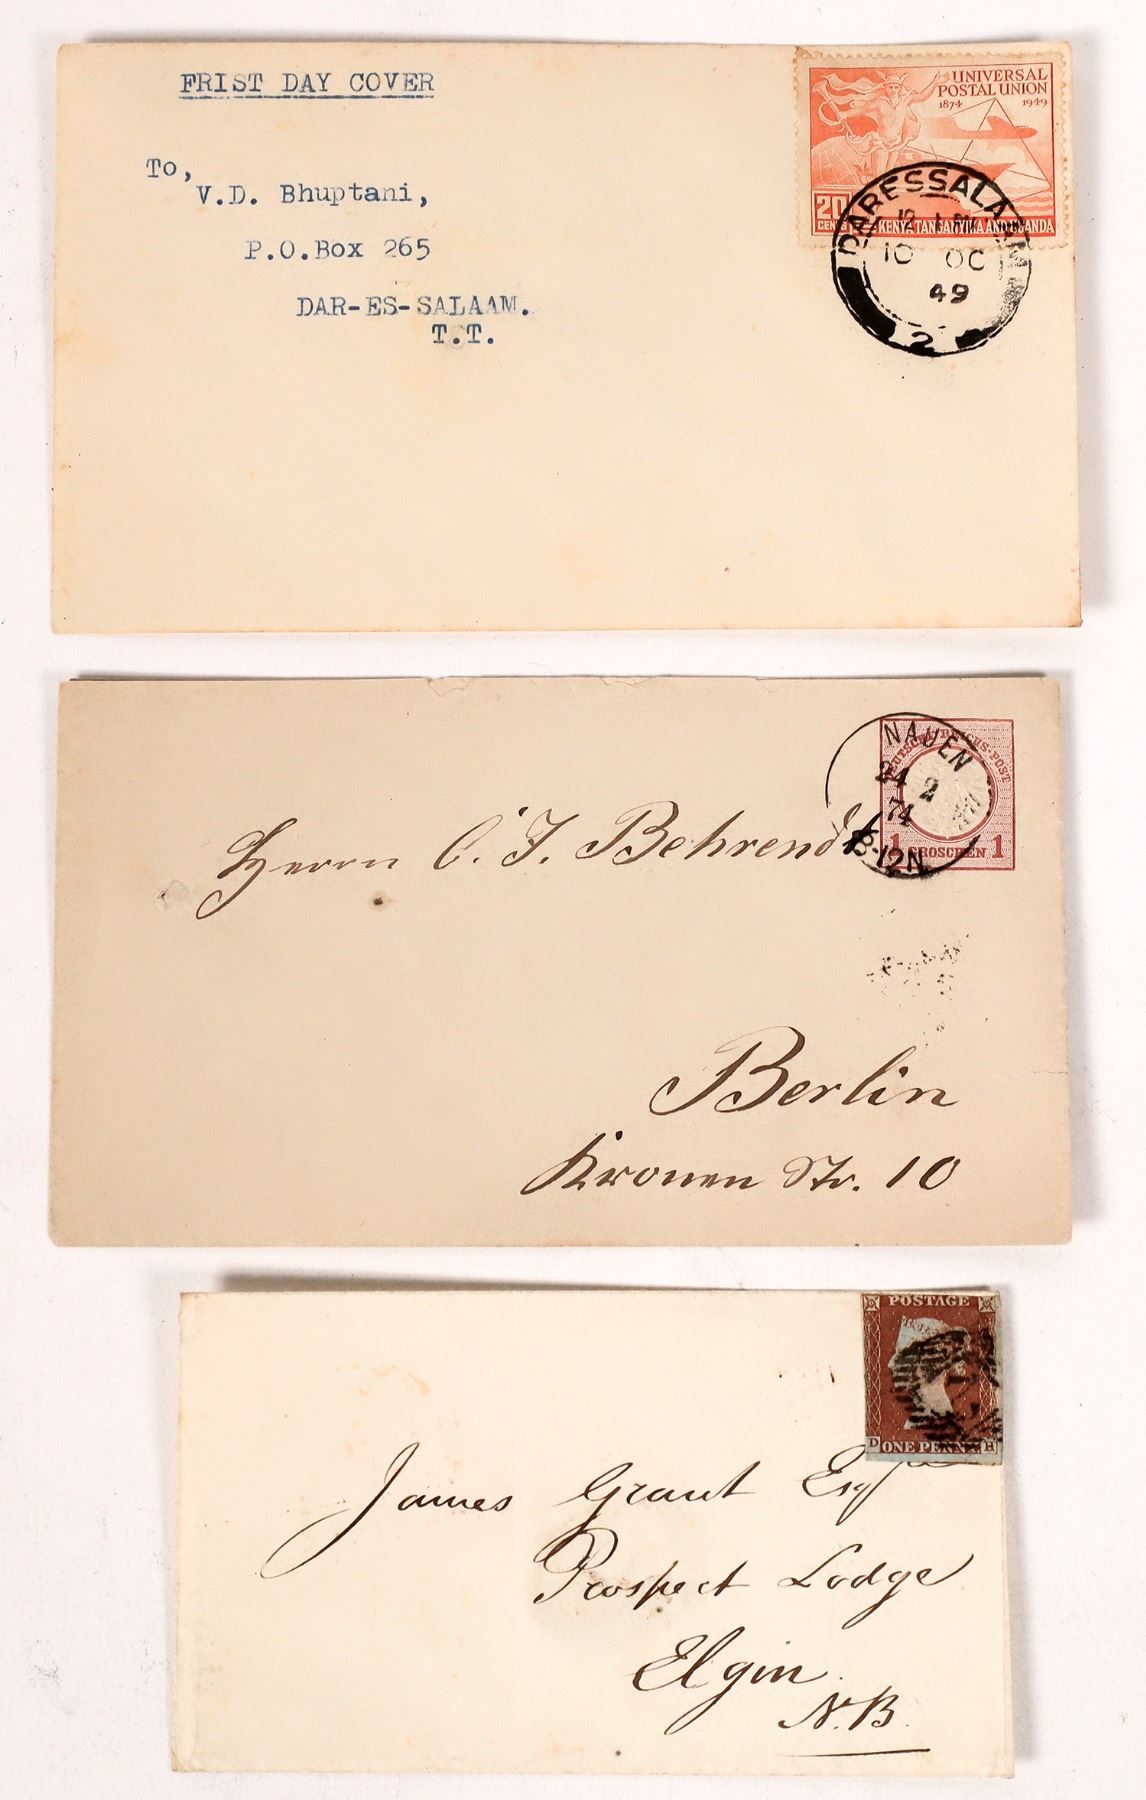 FRIST DAY COVER
UNIVERSAL
POSTAL UNION
1874 1949
20
CENTS
KENYA TANGANYIKA AND UGANDA
DARESSALAAM
10 OC
49
2
To,
V.D. Bhuptani,
P.O.Box 265
DAR-ES-SALAAM.
T.T.
NAUEN
24 2
74
8-12N
DEUTSCHE REICHS-POST
1 GROSCHEN 1
Herrn C. J. Behrend
Berlin
Kronen Str. 10
POSTAGE
D ONE PENNY H
James Grant Esqre
Prospect Lodge
Elgin
N.B.